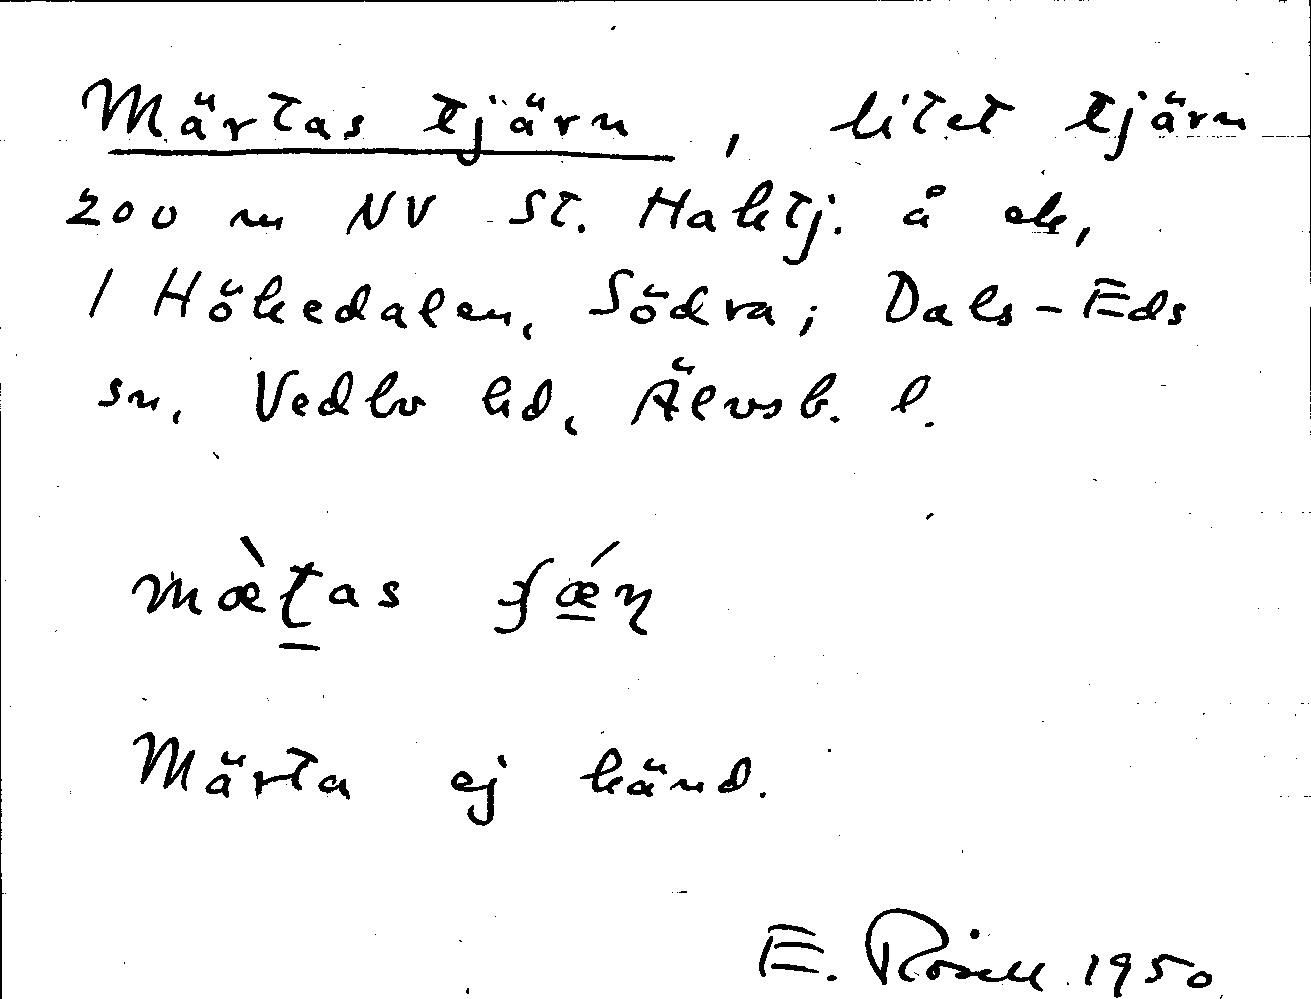 Märtas tjärn, litet tjärn
200 m NV St. Haktj. å ek,
1 Hökedalen, Södra; Dals-Eds
sn, Vedbo hd, Älvsb. l.
Märta ej känd.
E. Rosell 1950